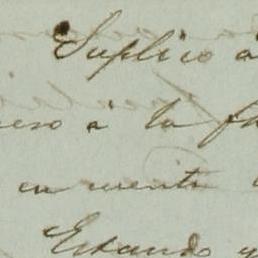 Suplico a
eso a la
en cuenta
Estando y